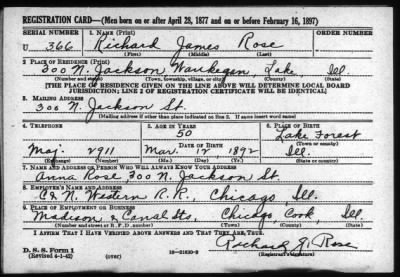 REGISTRATION CARD—(Men born on or after April 28, 1877 and on or before February 16, 1897)
SERIAL NUMBER 1. NAME (Print) ORDER NUMBER
U 366 Richard James Rose
(First) (Middle) (Last)
2. PLACE OF RESIDENCE (Print)
300 N. Jackson Waukegan, Lake, Ill.
(Number and street) (Town, township, village, or city) (County) (State)
[THE PLACE OF RESIDENCE GIVEN ON THE LINE ABOVE WILL DETERMINE LOCAL BOARD
JURISDICTION; LINE 2 OF REGISTRATION CERTIFICATE WILL BE IDENTICAL]
3. MAILING ADDRESS
300 N. Jackson St.
[Mailing address if other than place indicated on line 2. If same insert word same]
4. TELEPHONE 5. AGE IN YEARS 6. PLACE OF BIRTH
50 Lake Forest
DATE OF BIRTH (Town or county)
Maj. 2911 Mar. 12, 1892 Ill.
(Exchange) (Number) (Mo.) (Day) (Yr.) (State or country)
7. NAME AND ADDRESS OF PERSON WHO WILL ALWAYS KNOW YOUR ADDRESS
Anna Rose, 300 N. Jackson St.
8. EMPLOYER'S NAME AND ADDRESS
C & N. Western R.R., Chicago, Ill.
9. PLACE OF EMPLOYMENT OR BUSINESS
Madison & Canal Sts. Chicago, Cook, Ill.
(Number and street or R. F. D. number) (Town) (County) (State)
I AFFIRM THAT I HAVE VERIFIED ABOVE ANSWERS AND THAT THEY ARE TRUE.
D. S. S. Form 1
(Revised 4-1-42) (over) 16—21630-2 Richard J. Rose
(Registrant's signature)